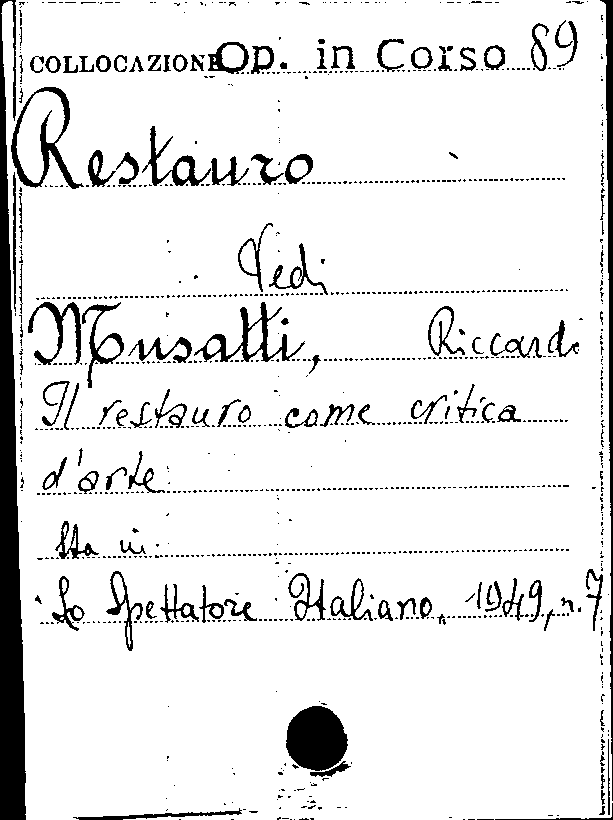 COLLOCAZIONE Op. in Corso 89
Restauro
Vedi
Musatti, Riccardo
Il restauro come critica
d'arte
Sta in:
Lo Spettatore Italiano, 1949, n. 7